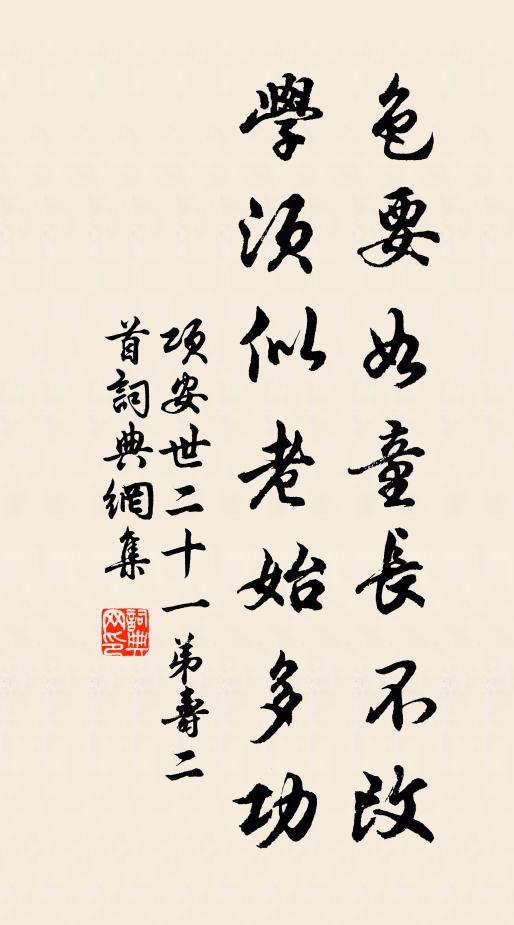 色要如童長不改
學須似老始多功
項安世二十一弟壽二
首詞典網集
詞典
网印